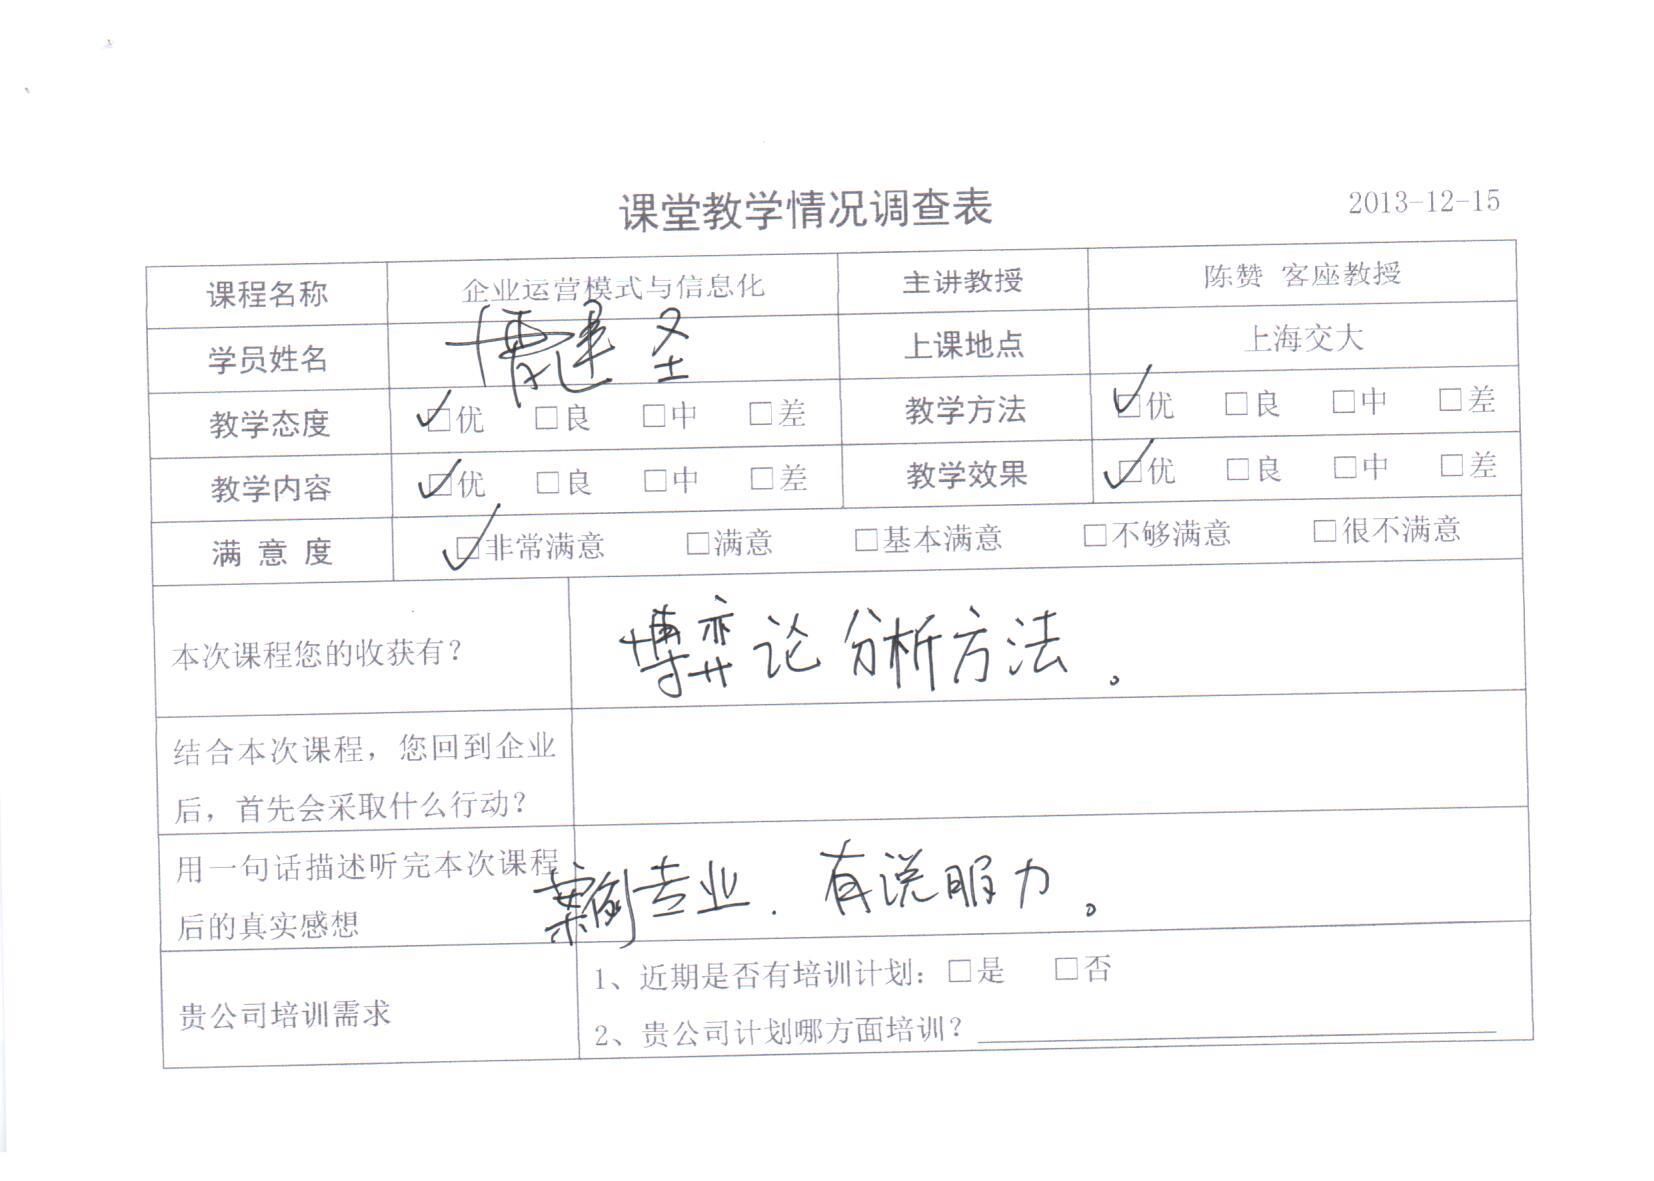 课堂教学情况调查表 2013-12-15
课程名称 企业运营模式与信息化 主讲教授 陈赞 客座教授
学员姓名 建圣 上课地点 上海交大
教学态度 ☑优 □良 □中 □差 教学方法 ☑优 □良 □中 □差
教学内容 ☑优 □良 □中 □差 教学效果 ☑优 □良 □中 □差
满意度 ☑非常满意 □满意 □基本满意 □不够满意 □很不满意
本次课程您的收获有? 博弈论分析方法。
结合本次课程，您回到企业
后，首先会采取什么行动?
用一句话描述听完本次课程
后的真实感想 案例专业.有说服力。
贵公司培训需求
1、近期是否有培训计划: □是 □否
2、贵公司计划哪方面培训?